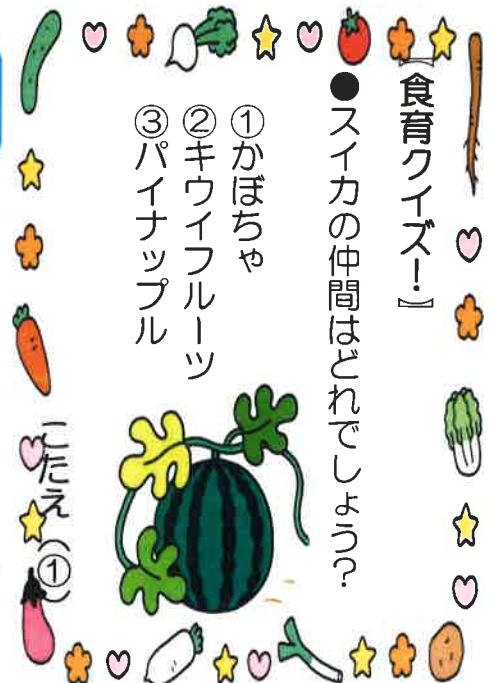 【食育クイズ！】
●スイカの仲間はどれでしょう？
①かぼちゃ
②キウイフルーツ
③パイナップル
こたえ（①）